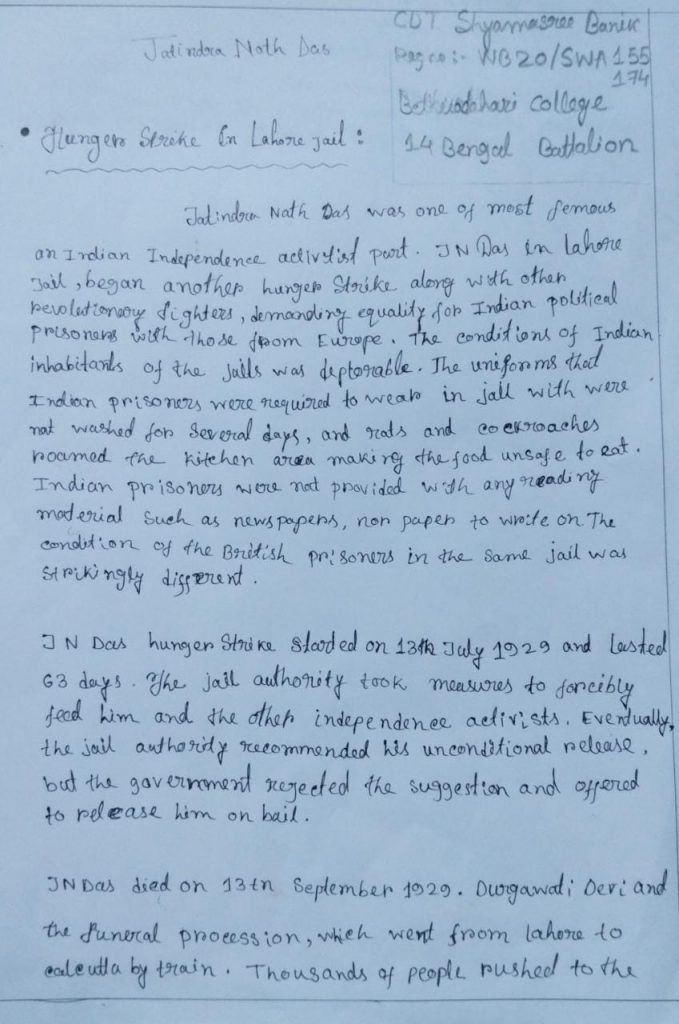 CDT Shyamasree Banik
Jatindra Nath Das
Reg no :- WB20/SWA155
174
Bethuadahari College
14 Bengal Battalion
• Hunger Strike In Lahore jail :
Jatindra Nath Das was one of most femous
an Indian Independence activitist part. JN Das in lahore
Jail, began another hunger Strike along with other
revolutionary fighters, demanding equality for Indian political
prisoners with those from Europe. The conditions of Indian
inhabitants of the jails was deplorable. The uniforms that
Indian prisoners were required to wear in jail with were
not washed for several days, and rats and cockroaches
roamed the kitchen area making the food unsafe to eat.
Indian prisoners were not provided with any reading
material such as newspapers, nor paper to write on. The
condition of the British prisoners in the same jail was
strikingly different.
J N Das hunger Strike Started on 13th July 1929 and lasted
63 days. The jail authority took measures to forcibly
feed him and the other independence activists. Eventually,
the jail authority recommended his unconditional release,
but the government rejected the suggestion and offered
to release him on bail.
JN Das died on 13th September 1929. Durgawati Devi and
the funeral procession, which went from lahore to
calcutta by train. Thousands of people rushed to the